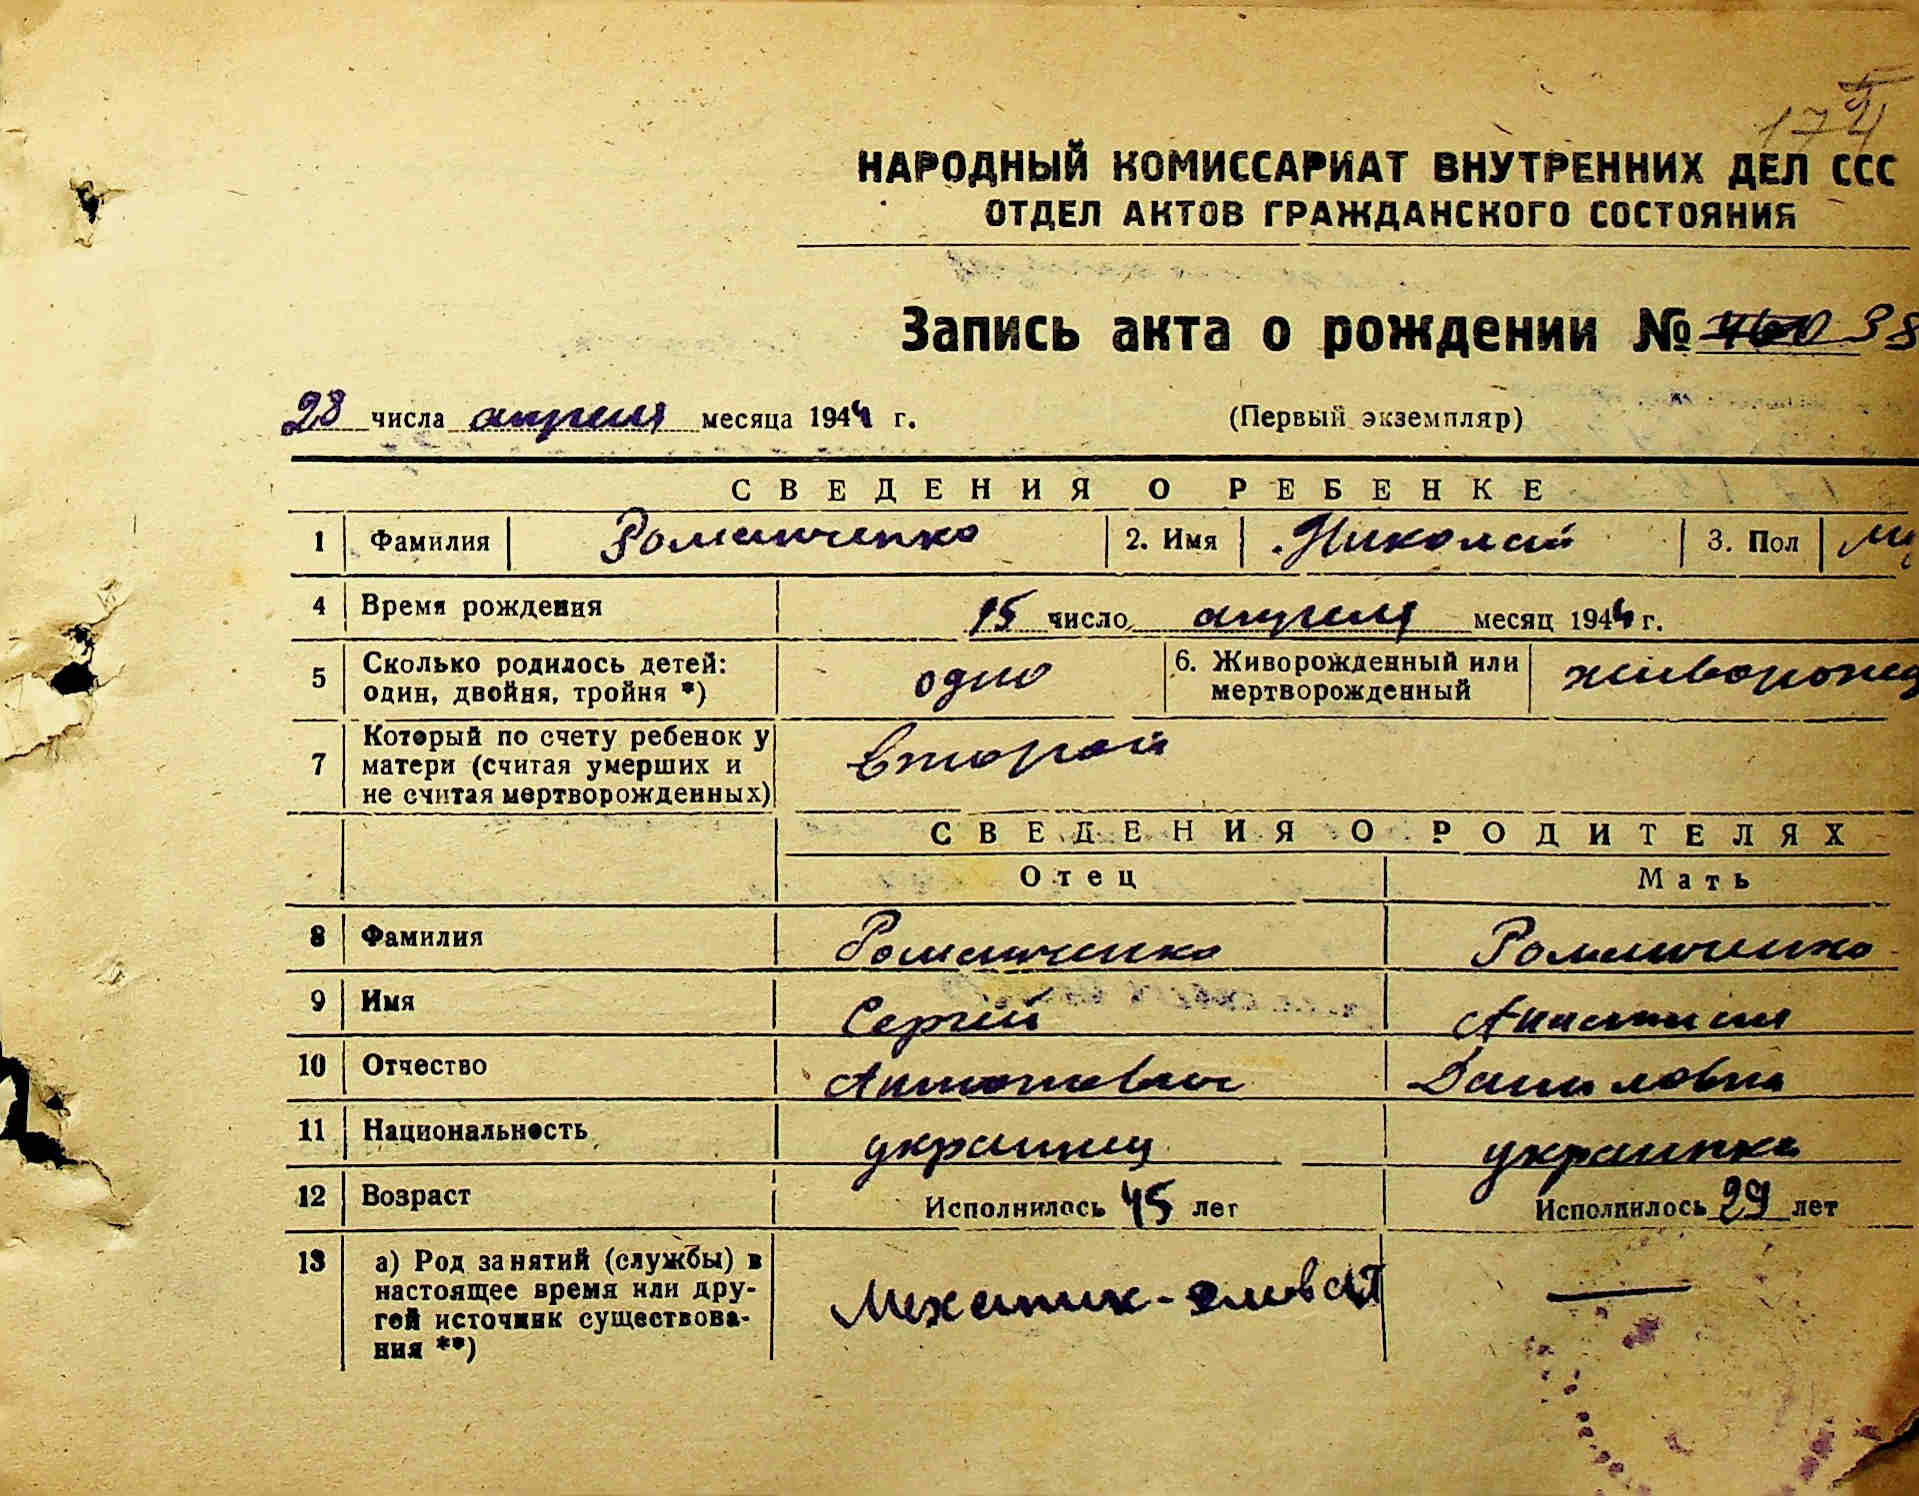 174
НАРОДНЫЙ КОМИССАРИАТ ВНУТРЕННИХ ДЕЛ ССС
ОТДЕЛ АКТОВ ГРАЖДАНСКОГО СОСТОЯНИЯ
Запись акта о рождении № 38
28 числа апреля месяца 1944 г. (Первый экземпляр)
СВЕДЕНИЯ О РЕБЕНКЕ
1 Фамилия Романченко 2. Имя Николай 3. Пол му
4 Время рождения 15 число апреля месяц 1944 г.
5 Сколько родилось детей: один, двойня, тройня *) одно 6. Живорожденный или мертворожденный живорожд
7 Который по счету ребенок у матери (считая умерших и не считая мертворожденных) второй
СВЕДЕНИЯ О РОДИТЕЛЯХ
Отец Мать
8 Фамилия Романченко Романченко
9 Имя Сергей Анастасия
10 Отчество Антонович Даниловна
11 Национальность украинец украинка
12 Возраст Исполнилось 45 лет Исполнилось 29 лет
13 а) Род занятий (службы) в
настоящее время или дру-
гой источник существова-
ния **) Механик - —